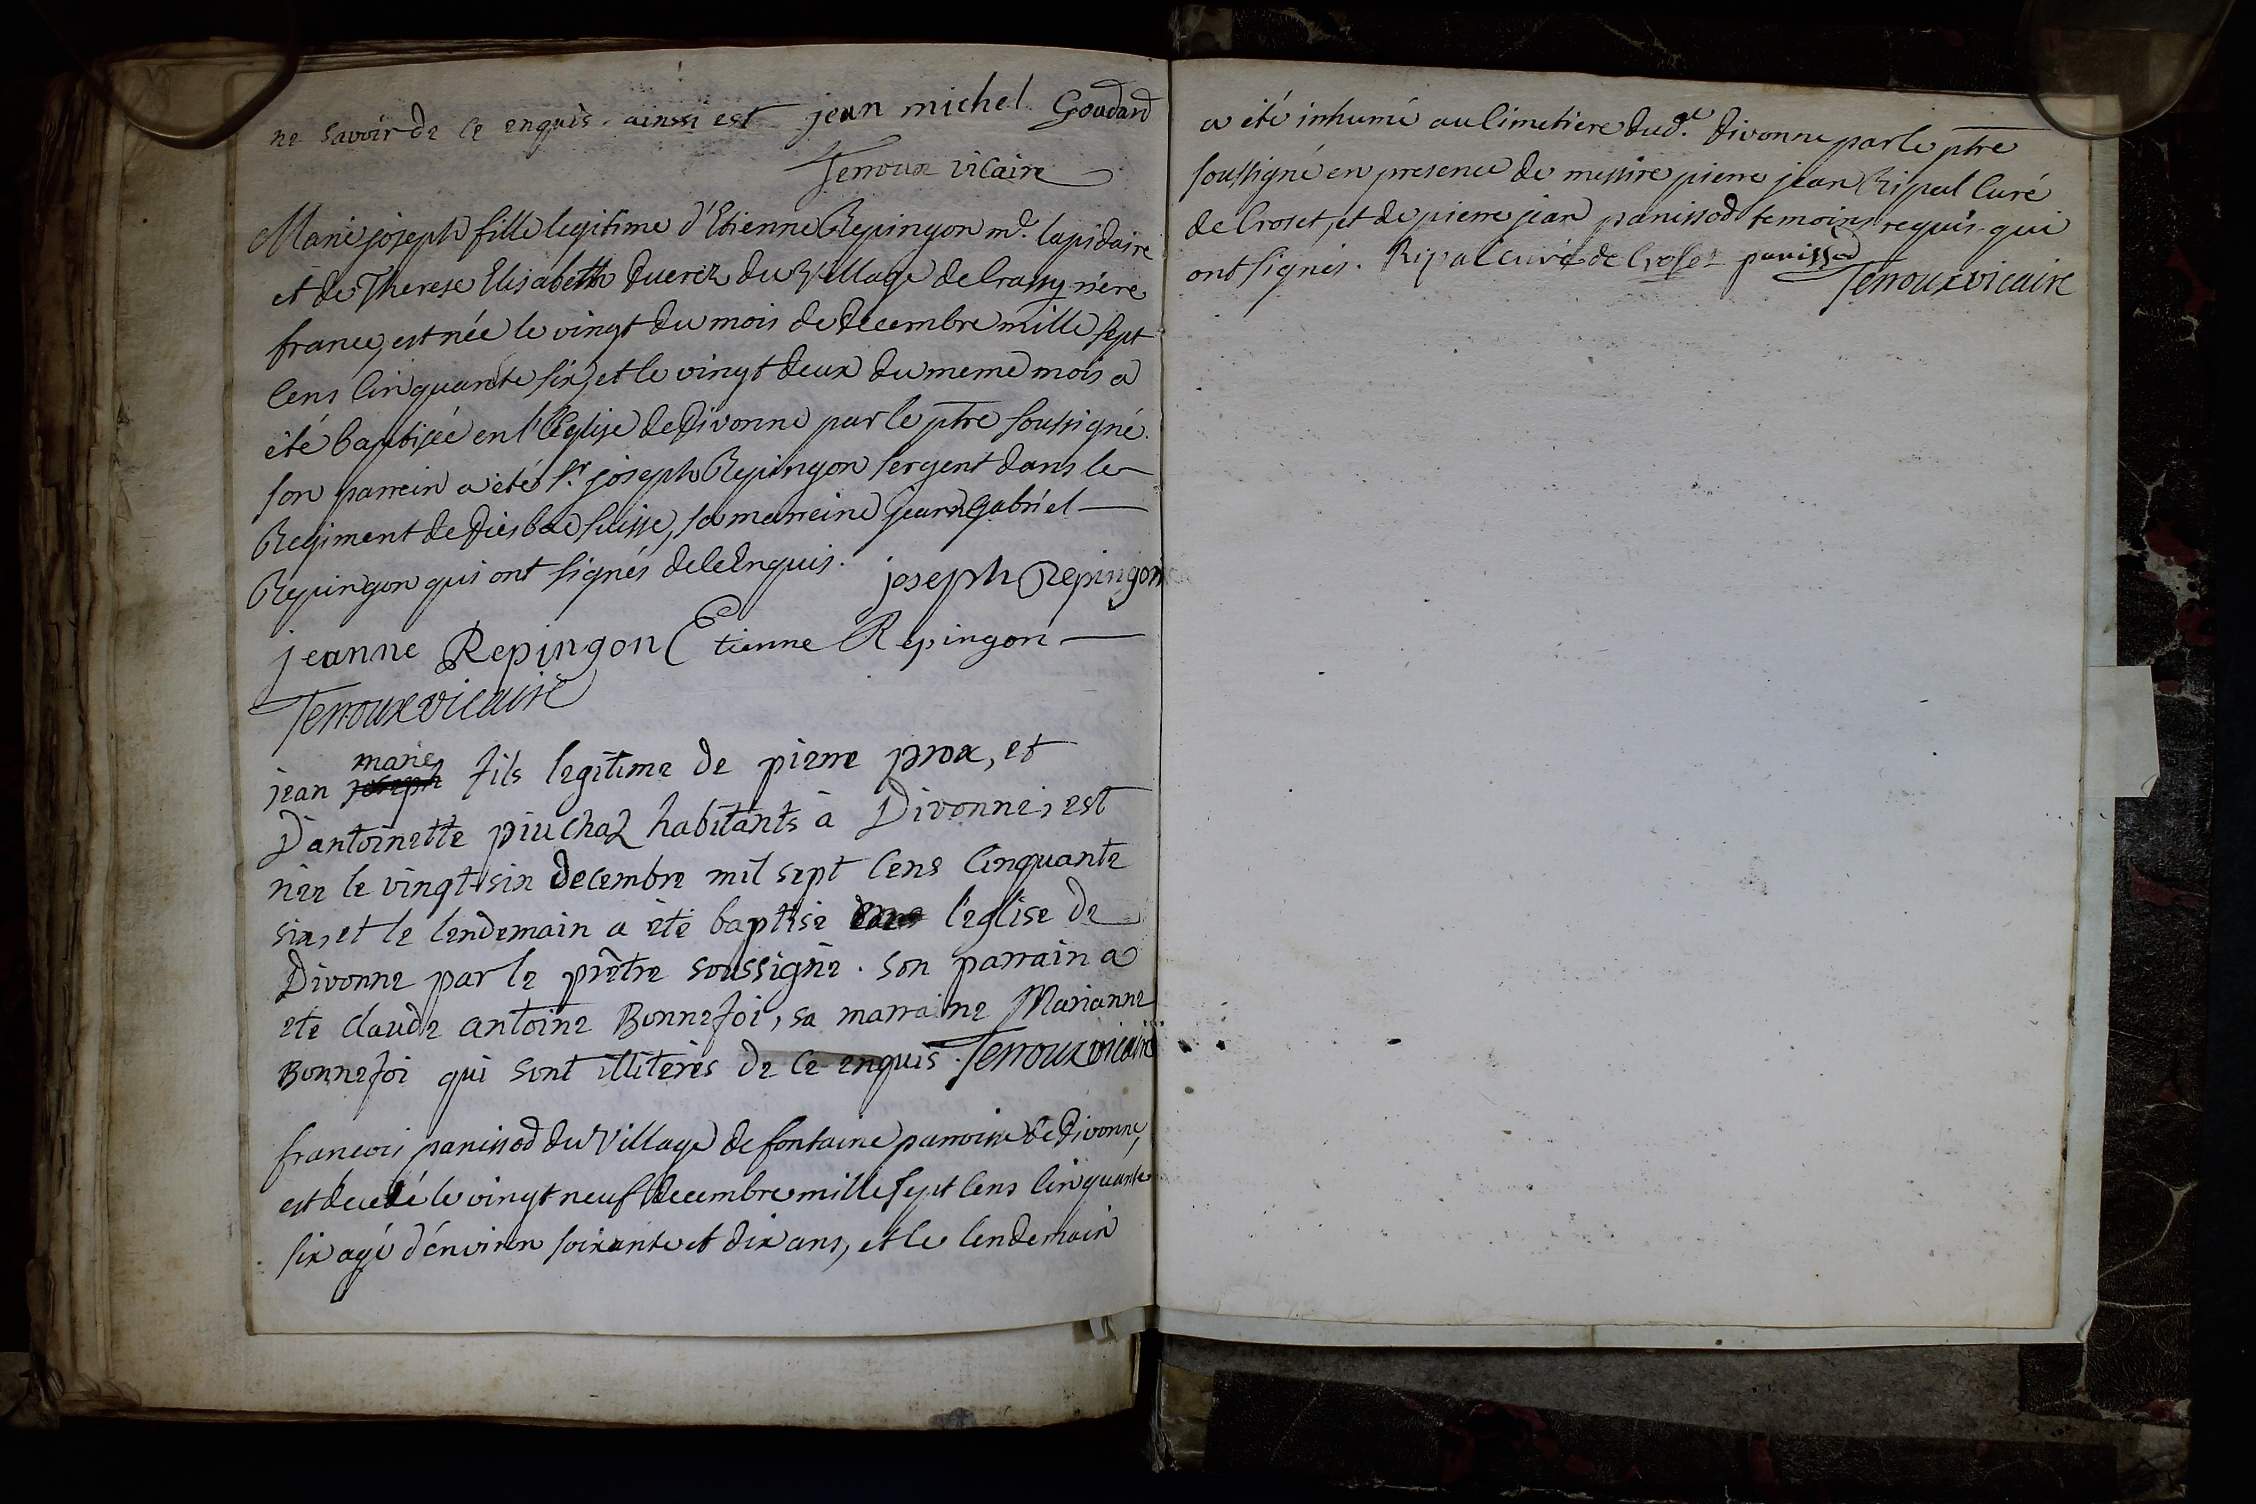 ne savoir de ce enquis. ainssi est jean michel Goudard
Terroux vicaire
Marie joseph fille legitime d'Etienne Repingon md. lapidaire
et de Therese Elisabeth Duerez du Village de Crassy riére
france, est née le vingt du mois de decembre mille sept
cens cinquante six, et le vingt deux du meme mois a
été baptisée en l'Eglise de Divonne par le ptre soussigné.
son parrein a été Sr. joseph Repingon sergent dans le
Regiment de Diesbac suisse, sa marreine jeann Gabriel
Repingon qui ont signés de ce Enquis. joseph Repingon
jeanne Repingon Etienne Repingon
Terroux vicaire
marie
jean joseph fils legitime de pierre prox, et
D'antoinette piuchaz habitants à Divonne, est
née le vingt-six decembre mil sept cens cinquante
six, et le lendemain a été baptisé dans l'eglise de
Divonne par le prêtre soussigné. son parrain a
eté claude antoine Bonnefoi, sa marraine Marianne
Bonnefoi qui sont illiterés de ce enquis. Terroux vicaire
francois panissod du Village de fontaine parroisse de Divonne,
est decedé le vingt neuf decembre mille sept cens cinquante
six agé d'énviron soixante et dix ans, et le lendemain
a été inhumé au cimetiere dud.t divonne par le ptre
soussigné en presence de messire pierre jean Ripal curé
de Croset, et de pierre jean panissod temoins requis qui
ont signés. Ripal curé de Croset panissod
Terroux vicaire